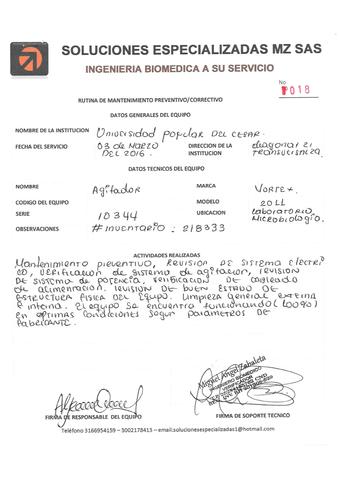 SOLUCIONES ESPECIALIZADAS MZ SAS
INGENIERIA BIOMEDICA A SU SERVICIO
No
1018
RUTINA DE MANTENIMIENTO PREVENTIVO/CORRECTIVO
DATOS GENERALES DEL EQUIPO
NOMBRE DE LA INSTITUCION Universidad popular DEL CESAR.
FECHA DEL SERVICIO 03 de MARZO DEL 2016 DIRECCION DE LA INSTITUCION diagonal 21
DATOS TECNICOS DEL EQUIPO
NOMBRE Agitador MARCA Vortex
CODIGO DEL EQUIPO MODELO 20LL
SERIE 10344 UBICACION Laboratorio Microbiologia
OBSERVACIONES # INVENTARIO: 218333
ACTIVIDADES REALIZADAS
Mantenimiento preventivo, REVISION DE SISTEMA ELECTRI
CO, verificacion de sistema de agitacion, revision
DE sistema de potencia, verificacion DE cableado
de alimentacion. revision de buen ESTADO DE
ESTRUCTURA FISICA DEL EQUIPO. Limpieza general externa
e interna. El equipo se encuentra funcionando (100%)
en optimas condiciones segun parametros DE
fabricante.
Miguel Angel Zabaleta
INGENIERO BIOMEDICO
FIRMA DE RESPONSABLE DEL EQUIPO FIRMA DE SOPORTE TECNICO
Teléfono 3166954159 – 3002178413 – email:solucionesespecializadas1@hotmail.com